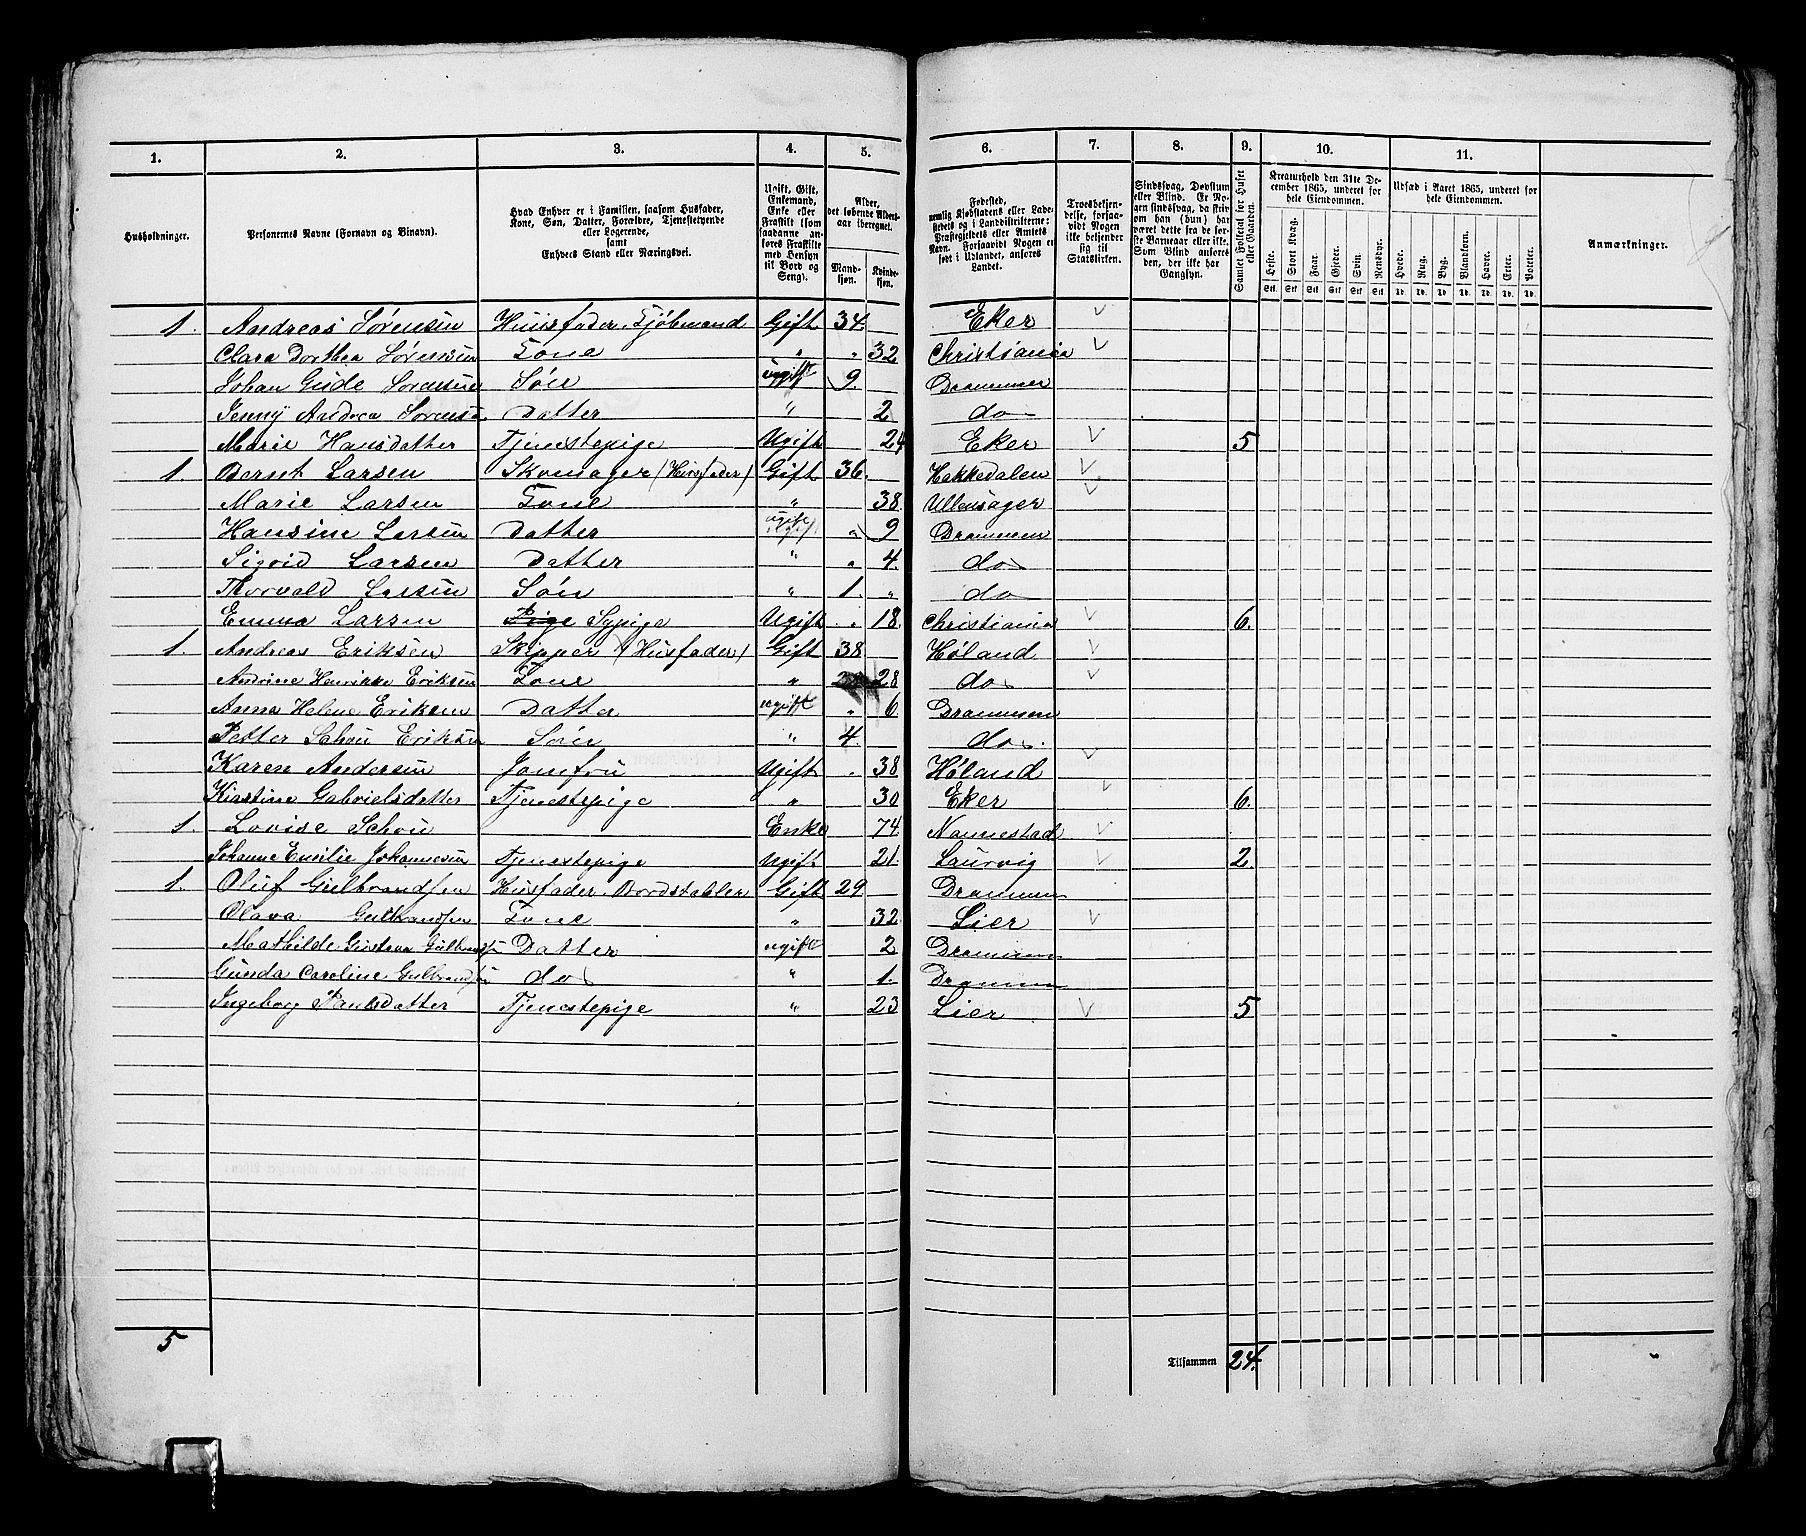 1. 2. 3. 4. 5. 6. 7. 8. 9. 10. 11.
Husholdninger.
Personernes Navne (Fornavn og Binavn).
Hvad Enhver er i Familien, saasom Husfader, Kone, Søn, Datter, Forældre, Tjenestetyende eller Logerende, samt Enhvers Stand eller Næringsvei.
Ugift, Gift, Enkemand, Enke eller Fraskilt (som saadanne anføres Fraskilte med Hensyn til Bord og Seng).
Alder, det løbende Alders-aar iberegnet.
Mand-kjøn. Kvinde-kjøn.
Fødested, nemlig Kjøbstadens eller Ladestedets og i Landdistrikterne: Præstegjeldets eller Amtets Navn. Forsaavidt Nogen er født i Udlandet, anføres Landet.
Troesbekjendelse, forsaavidt Nogen ikke bekjender sig til Statskirken.
Sindssvag, Døvstum eller Blind. Er Nogen sindssvag, da skriv om han (hun) har været dette fra de første Barneaar eller ikke. Som Blind anføres den, der ikke har Gangsyn.
Samlet Folketal for Huset eller Gaarden.
Kreaturhold den 31te December 1865, underet for hele Eiendommen.
Heste. Stort Kvæg. Faar. Gjeder. Svin. Rensdyr.
Udsæd i Aaret 1865, underet for hele Eiendommen.
Hvede. Rug. Byg. Blandkorn. Havre. Erter. Poteter.
Anmærkninger.
1. Andreas Sørensen Huusfader, Kjøbmand Gift 34. Eker
Clara Dorthea Sørensen Kone " " 32 Christiania
Johan Gude Sørensen Søn ugift 9. Drammen
Jenny Andrea Sørensen Datter " 2 do
Marie Hansdatter Tjenestepige Ugift 24 Eker 5
1. Bernt Larsen Skomager (Husfader) Gift 36. Hakkedalen
Marie Larsen Kone " 38. Ullensager
Hansine Larsen Datter ugift " 9 Drammen
Sigrid Larsen Datter " " 4. do
Thorvald Larsen Søn " 1. " do
Emma Larsen Pige Sypige Ugift " 18. Christiania 6.
1. Andreas Eriksen Skipper (Husfader) Gift 38 Høland
Andrine Henrikke Eriksen Kone " 28 do
Anna Helene Eriksen Datter ugift " 6. Drammen
Petter Schou Eriksen Søn " 4. do.
Karen Andersen Jomfru Ugift " 38 Høland
Kirstine Gabrielsdatter Tjenestepige " 30 Eker 6.
1. Lovise Schou Enke 74. Nannestad
Johanne Emilie Johannesen Tjenestepige Ugift 21. Laurvig 2.
1. Oluf Gulbrandsen Husfader, Bordstabler Gift 29 Drammen
Olava Gulbrandsen Kone " 32. Lier
Mathilde Gustava Gulbrandsen Datter ugift 2 Drammen
Gunda Caroline Gulbrandsen do " 1. Drammen
Ingeborg Paulsdatter Tjenestepige " 23 Lier 5
5
Tilsammen 24.